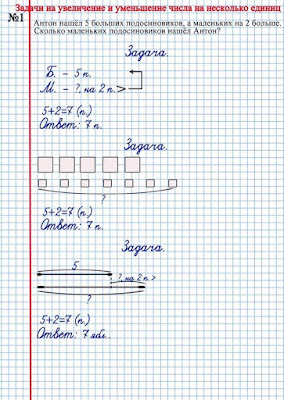 Задачи на увеличение и уменьшение числа на несколько единиц
№1
Антон нашёл 5 больших подосиновиков, а маленьких на 2 больше.
Сколько маленьких подосиновиков нашёл Антон?
Задача.
Б. – 5 п.
М. – ?, на 2 п. >
5+2=7 (п.)
Ответ: 7 п.
Задача.
?
5+2=7 (п.)
Ответ: 7 п.
Задача.
5
?, на 2 п. >
?
5+2=7 (п.)
Ответ: 7 ябл.